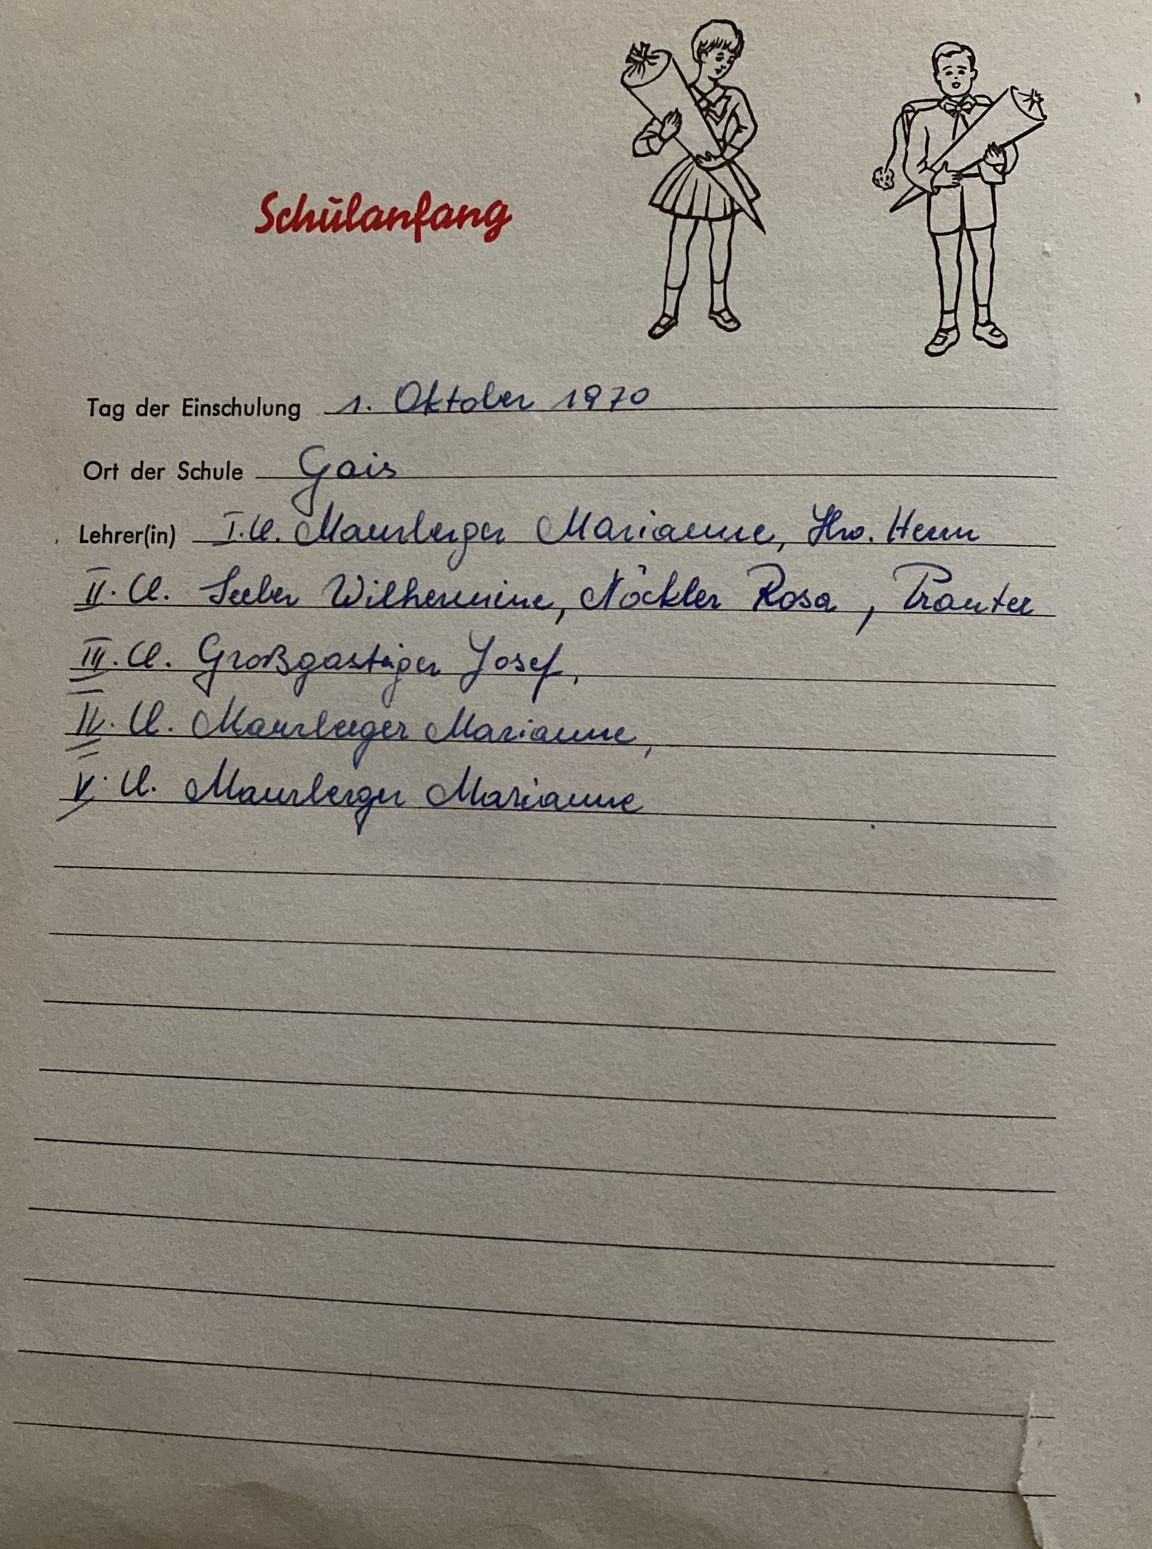 Schulanfang
Tag der Einschulung 1. Oktober 1970
Ort der Schule Gais
Lehrer(in) I. Kl. Maurberger Marianne, Hw. Herrn
II. Kl. Seeber Wilhelmine, Nöckler Rosa,
III. Kl. Großgasteiger Josef,
IV. Kl. Maurberger Marianne,
V. Kl. Maurberger Marianne